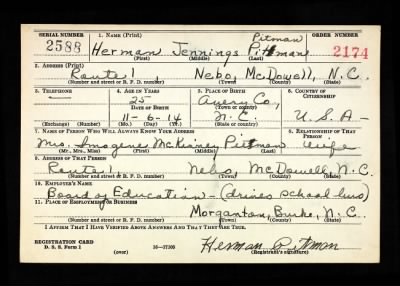 SERIAL NUMBER 1. NAME (Print) ORDER NUMBER
Pitman
2588 Herman Jennings Pittman 2174
(First) (Middle) (Last)
2. ADDRESS (Print)
Route 1, Nebo, McDowell, N.C.
(Number and street or R. F. D. number) (Town) (County) (State)
3. TELEPHONE 4. AGE IN YEARS 5. PLACE OF BIRTH 6. COUNTRY OF CITIZENSHIP
— 25 Avery Co.,
DATE OF BIRTH (Town or county)
11-6-14 N.C. U.S.A-
(Exchange) (Number) (Mo.) (Day) (Yr.) (State or country)
7. NAME OF PERSON WHO WILL ALWAYS KNOW YOUR ADDRESS 8. RELATIONSHIP OF THAT PERSON
Mrs. Imogene McKinney Pittman wife
(Mr., Mrs., Miss) (First) (Middle) (Last)
9. ADDRESS OF THAT PERSON
Route 1 Nebo, McDowell, N.C.
(Number and street or R. F. D. number) (Town) (County) (State)
10. EMPLOYER'S NAME
Board of Education - (drives school bus)
11. PLACE OF EMPLOYMENT OR BUSINESS
Morganton, Burke, N.C.
(Number and street or R. F. D. number) (Town) (County) (State)
I AFFIRM THAT I HAVE VERIFIED ABOVE ANSWERS AND THAT THEY ARE TRUE.
REGISTRATION CARD
D. S. S. Form 1 (over) 16-17105 Herman Pitman
(Registrant's signature)